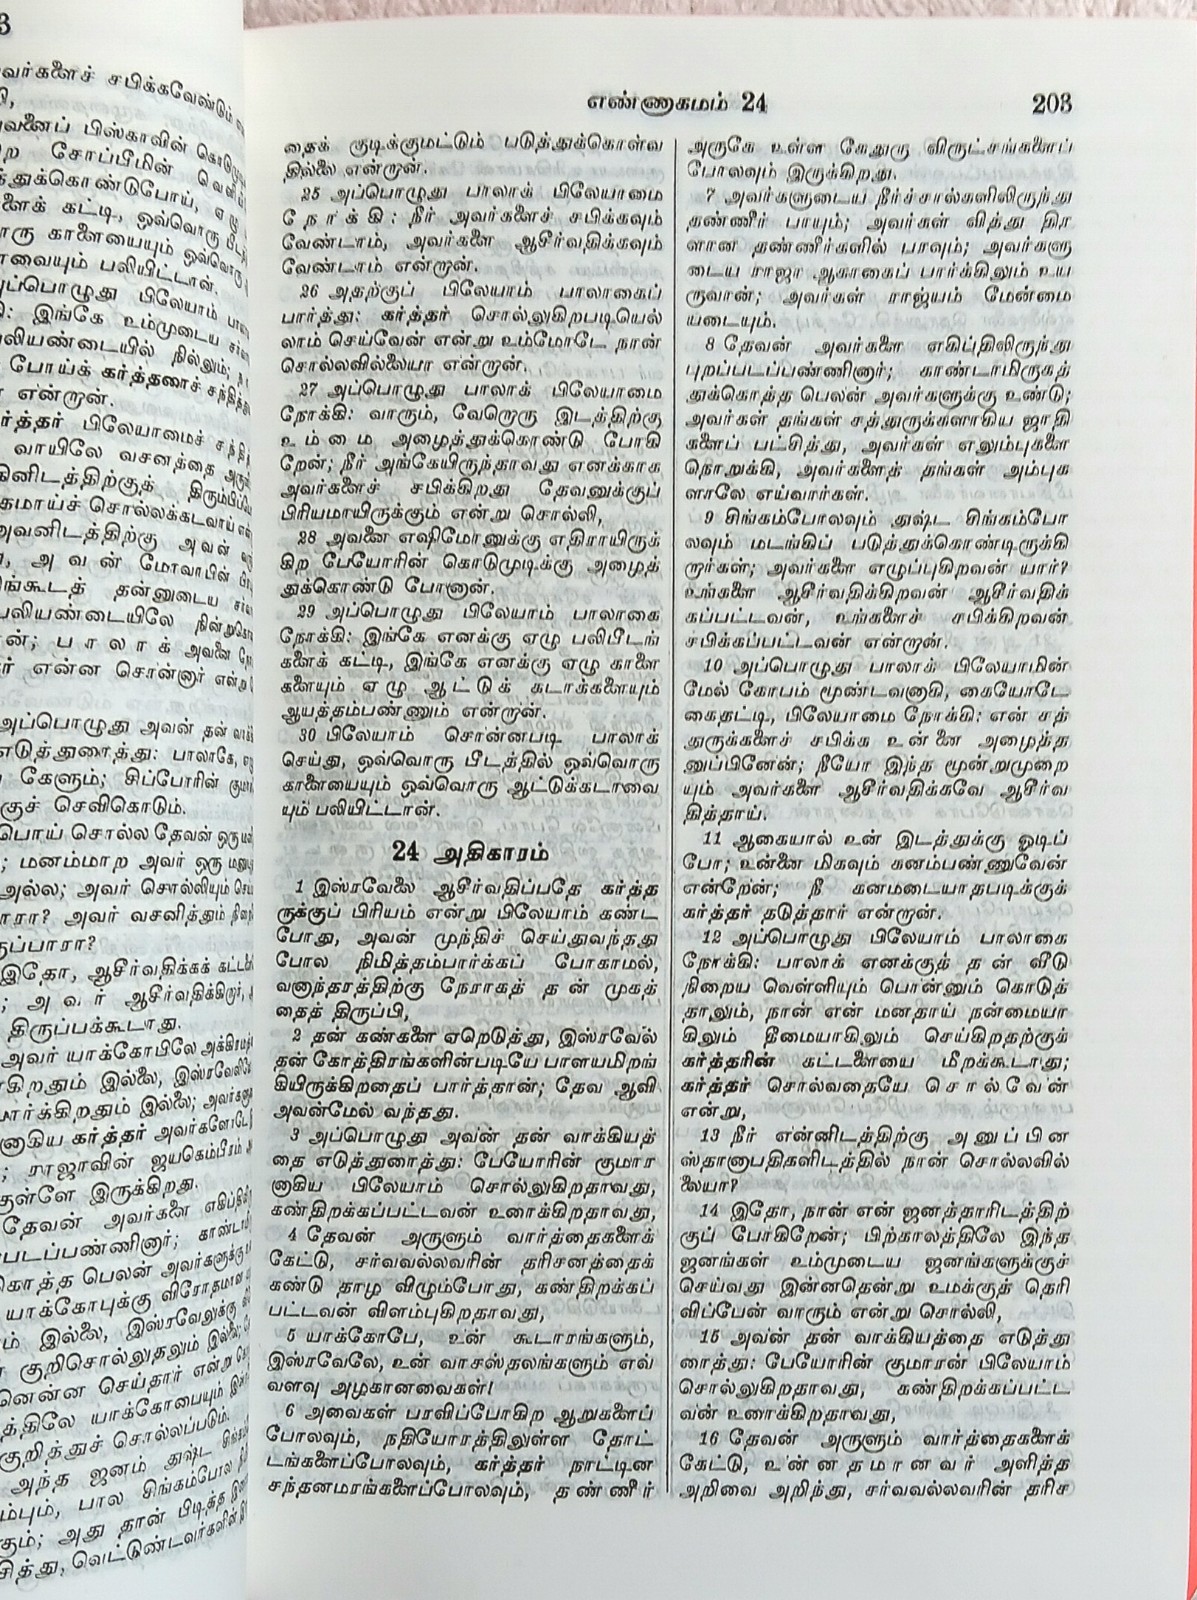 3
வர்களைச் சபிக்கவேண்டும்
வனைப் பிஸ்காவின்
சோப்பீமின்
துக்கொண்டுபோய், ஏழு
ளைக் கட்டி, ஒவ்வொரு
காளையையும் ஒவ்வொரு
வையும் பலியிட்டான்.
ப்பொழுது பிலேயாம்
இங்கே உம்முடைய
லியண்டையில் நில்லும்;
போய்க் கர்த்தரைச்
என்றான்.
ர்த்தர் பிலேயாமைச்
வாயிலே வசனத்தை
னிடத்திற்குத்
மாய்ச் சொல்லக்கடவாய்
அவனிடத்திற்கு அவன்
அவன் மோவாபின்
கூடத் தன்னுடைய
லியண்டையிலே
ன்; பாலாக் அவனை
என்ன சொன்னார்
அப்பொழுது அவன் தன்
எடுத்துரைத்து: பாலாகே,
கேளும்; சிப்போரின்
குச் செவிகொடும்.
பொய் சொல்ல தேவன்
மனம்மாற அவர் ஒரு
அல்ல; அவர் சொல்லியும்
ாரா? அவர் வசனித்தும்
ருப்பாரா?
இதோ, ஆசீர்வதிக்கக்
அவர் ஆசீர்வதிக்கிறார்,
திருப்பக்கூடாது.
அவர் யாக்கோபிலே
கிறதும் இல்லை,
ார்க்கிறதும் இல்லை;
னாகிய கர்த்தர்
ராஜாவின் ஜயகெம்பீரம்
குள்ளே இருக்கிறது.
தேவன் அவர்களை
படப்பண்ணினார்;
கொத்த பெலன் அவர்களுக்கு
யாக்கோபுக்கு விரோதமான
ம் இல்லை, இஸ்ரவேலுக்கு
குறிசொல்லுதலும் இல்லை;
னென்ன செய்தார் என்று
த்திலே யாக்கோபையும்
குறித்துச் சொல்லப்படும்.
அந்த ஜனம் துஷ்ட
ம்பும், பால சிங்கம்போல
கும்; அது தான் பிடித்த
சித்து, வெட்டுண்டவர்களின்
எண்ணாகமம் 24 203
தைக் குடிக்குமட்டும் படுத்துக்கொள்வ
தில்லை என்றான்.
25 அப்பொழுது பாலாக் பிலேயாமை
நோக்கி: நீர் அவர்களைச் சபிக்கவும்
வேண்டாம், அவர்களை ஆசீர்வதிக்கவும்
வேண்டாம் என்றான்.
26 அதற்குப் பிலேயாம் பாலாகைப்
பார்த்து: கர்த்தர் சொல்லுகிறபடியெல்
லாம் செய்வேன் என்று உம்மோடே நான்
சொல்லவில்லையா என்றான்.
27 அப்பொழுது பாலாக் பிலேயாமை
நோக்கி: வாரும், வேறொரு இடத்திற்கு
உம்மை அழைத்துக்கொண்டு போகி
றேன்; நீர் அங்கேயிருந்தாவது எனக்காக
அவர்களைச் சபிக்கிறது தேவனுக்குப்
பிரியமாயிருக்கும் என்று சொல்லி,
28 அவனை எஷிமோனுக்கு எதிராயிருக்
கிற பேயோரின் கொடுமுடிக்கு அழைத்
துக்கொண்டு போனான்.
29 அப்பொழுது பிலேயாம் பாலாகை
நோக்கி: இங்கே எனக்கு ஏழு பலிபீடங்
களைக் கட்டி, இங்கே எனக்கு ஏழு காளை
களையும் ஏழு ஆட்டுக் கடாக்களையும்
ஆயத்தம்பண்ணும் என்றான்.
30 பிலேயாம் சொன்னபடி பாலாக்
செய்து, ஒவ்வொரு பீடத்தில் ஒவ்வொரு
காளையையும் ஒவ்வொரு ஆட்டுக்கடாவை
யும் பலியிட்டான்.
24 அதிகாரம்
1 இஸ்ரவேலை ஆசீர்வதிப்பதே கர்த்த
ருக்குப் பிரியம் என்று பிலேயாம் கண்ட
போது, அவன் முந்திச் செய்துவந்தது
போல நிமித்தம்பார்க்கப் போகாமல்,
வனாந்தரத்திற்கு நேராகத் தன் முகத்
தைத் திருப்பி,
2 தன் கண்களை ஏறெடுத்து, இஸ்ரவேல்
தன் கோத்திரங்களின்படியே பாளயமிறங்
கியிருக்கிறதைப் பார்த்தான்; தேவ ஆவி
அவன்மேல் வந்தது.
3 அப்பொழுது அவன் தன் வாக்கியத்
தை எடுத்துரைத்து: பேயோரின் குமார
னாகிய பிலேயாம் சொல்லுகிறதாவது,
கண்திறக்கப்பட்டவன் உரைக்கிறதாவது,
4 தேவன் அருளும் வார்த்தைகளைக்
கேட்டு, சர்வவல்லவரின் தரிசனத்தைக்
கண்டு தாழ விழும்போது, கண்திறக்கப்
பட்டவன் விளம்புகிறதாவது,
5 யாக்கோபே, உன் கூடாரங்களும்,
இஸ்ரவேலே, உன் வாசஸ்தலங்களும் எவ்
வளவு அழகானவைகள்!
6 அவைகள் பரவிப்போகிற ஆறுகளைப்
போலவும், நதியோரத்திலுள்ள தோட்
டங்களைப்போலவும், கர்த்தர் நாட்டின
சந்தனமரங்களைப்போலவும், தண்ணீர்
அருகே உள்ள கேதுரு விருட்சங்களைப்
போலவும் இருக்கிறது.
7 அவர்களுடைய நீர்ச்சால்களிலிருந்து
தண்ணீர் பாயும்; அவர்கள் வித்து திர
ளான தண்ணீர்களில் பரவும்; அவர்களு
டைய ராஜா ஆகாகைப் பார்க்கிலும் உய
ருவான்; அவர்கள் ராஜ்யம் மேன்மை
யடையும்.
8 தேவன் அவர்களை எகிப்திலிருந்து
புறப்படப்பண்ணினார்; காண்டாமிருகத்
துக்கொத்த பெலன் அவர்களுக்கு உண்டு;
அவர்கள் தங்கள் சத்துருக்களாகிய ஜாதி
களைப் பட்சித்து, அவர்கள் எலும்புகளை
நொறுக்கி, அவர்களைத் தங்கள் அம்புக
ளாலே எய்வார்கள்.
9 சிங்கம்போலவும் துஷ்ட சிங்கம்போ
லவும் மடங்கிப் படுத்துக்கொண்டிருக்கி
றார்கள்; அவர்களை எழுப்புகிறவன் யார்?
உங்களை ஆசீர்வதிக்கிறவன் ஆசீர்வதிக்
கப்பட்டவன், உங்களைச் சபிக்கிறவன்
சபிக்கப்பட்டவன் என்றான்.
10 அப்பொழுது பாலாக் பிலேயாமின்
மேல் கோபம் மூண்டவனாகி, கையோடே
கைதட்டி, பிலேயாமை நோக்கி: என் சத்
துருக்களைச் சபிக்க உன்னை அழைத்த
னுப்பினேன்; நீயோ இந்த மூன்றுமுறை
யும் அவர்களை ஆசீர்வதிக்கவே ஆசீர்வ
தித்தாய்.
11 ஆகையால் உன் இடத்துக்கு ஓடிப்
போ; உன்னை மிகவும் கனம்பண்ணுவேன்
என்றேன்; நீ கனமடையாதபடிக்குக்
கர்த்தர் தடுத்தார் என்றான்.
12 அப்பொழுது பிலேயாம் பாலாகை
நோக்கி: பாலாக் எனக்குத் தன் வீடு
நிறைய வெள்ளியும் பொன்னும் கொடுத்
தாலும், நான் என் மனதாய் நன்மையா
கிலும் தீமையாகிலும் செய்கிறதற்குக்
கர்த்தரின் கட்டளையை மீறக்கூடாது;
கர்த்தர் சொல்வதையே சொல்வேன்
என்று,
13 நீர் என்னிடத்திற்கு அனுப்பின
ஸ்தானாபதிகளிடத்தில் நான் சொல்லவில்
லையா?
14 இதோ, நான் என் ஜனத்தாரிடத்திற்
குப் போகிறேன்; பிற்காலத்திலே இந்த
ஜனங்கள் உம்முடைய ஜனங்களுக்குச்
செய்வது இன்னதென்று உமக்குத் தெரி
விப்பேன் வாரும் என்று சொல்லி,
15 அவன் தன் வாக்கியத்தை எடுத்து
ரைத்து: பேயோரின் குமாரன் பிலேயாம்
சொல்லுகிறதாவது, கண்திறக்கப்பட்ட
வன் உரைக்கிறதாவது,
16 தேவன் அருளும் வார்த்தைகளைக்
கேட்டு, உன்னதமானவர் அளித்த
அறிவை அறிந்து, சர்வவல்லவரின் தரிச